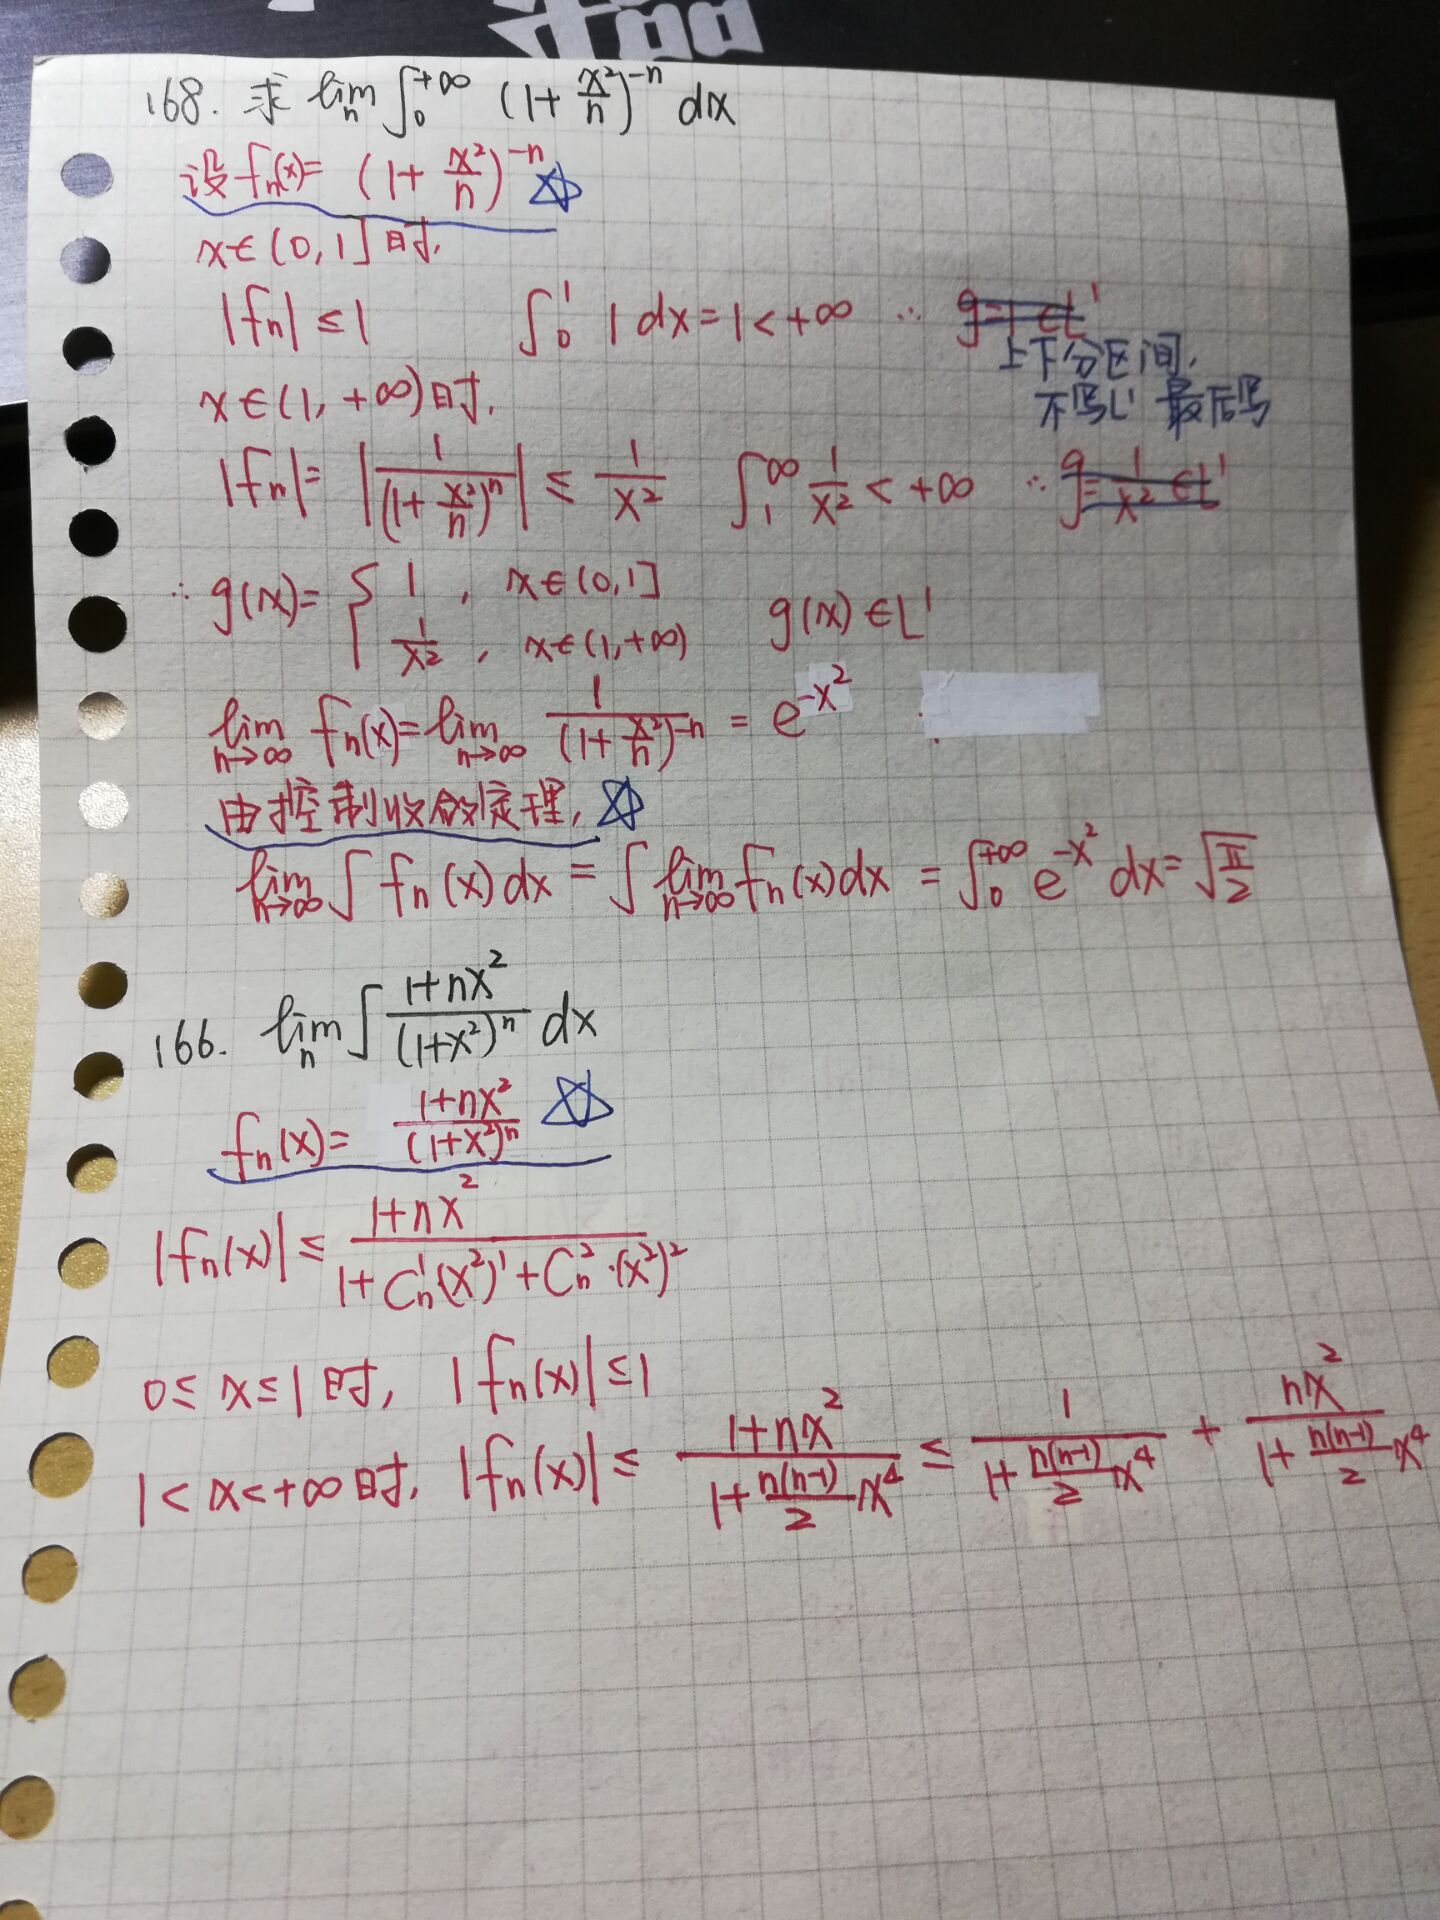 168. 求 lim_n ∫_0^{+∞} (1+x²/n)^{-n} dx
设 fn(x)= (1+x²/n)^{-n} ☆
x∈(0,1]时,
|fn|≤1 ∫_0^1 1dx=1<+∞ ∴ g=1∈L¹
上下分区间,
不写L¹ 最后写
x∈(1,+∞)时,
|fn|=|1/(1+x²/n)^n| ≤ 1/x² ∫_1^∞ 1/x² < +∞ ∴ g=1/x²∈L¹
∴ g(x)= { 1 , x∈(0,1] g(x)∈L¹
1/x² , x∈(1,+∞)
lim_{n→∞} fn(x)=lim_{n→∞} 1/(1+x²/n)^{-n} = e^{-x²}
由控制收敛定理, ☆
lim_{n→∞} ∫ fn(x)dx = ∫ lim_{n→∞} fn(x)dx = ∫_0^{+∞} e^{-x²} dx = √(π/2)
166. lim_n ∫ (1+nx²)/(1+x²)^n dx
fn(x)= (1+nx²)/(1+x²)^n ☆
|fn(x)| ≤ (1+nx²)/(1+C_n^1(x²)^1+C_n^2·(x²)²)
0≤x≤1时, |fn(x)|≤1
1<x<+∞时, |fn(x)| ≤ (1+nx²)/(1+n(n-1)/2 x⁴) ≤ 1/(1+n(n-1)/2 x⁴) + nx²/(1+n(n-1)/2 x⁴)